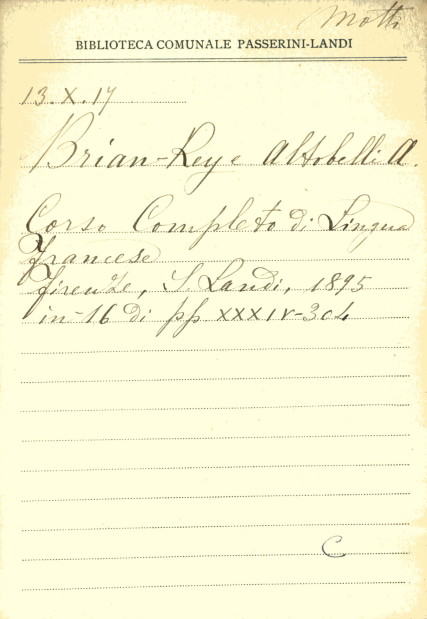 Motti
BIBLIOTECA COMUNALE PASSERINI-LANDI
13.X.17
Brian-Rey e Altobelli A.
Corso Completo di Lingua
francese
firenze, S. Landi, 1895
in-16 di pp XXXIV-304
C